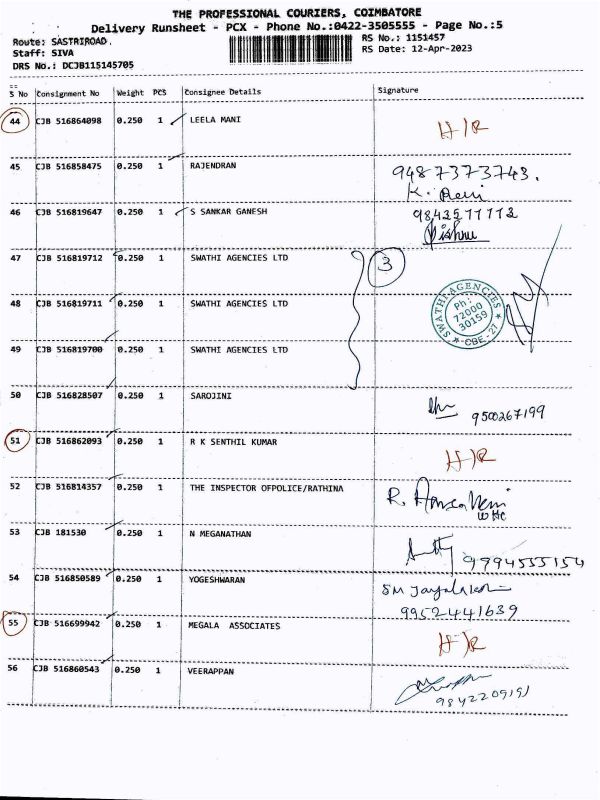 THE PROFESSIONAL COURIERS, COIMBATORE
Delivery Runsheet - PCX - Phone No.:0422-3505555 - Page No.:5
Route: SASTRIROAD. RS No.: 1151457
Staff: SIVA RS Date: 12-Apr-2023
DRS No.: DCJB115145705
S No Consignment No Weight PCS Consignee Details Signature
44 CJB 516864098 0.250 1 LEELA MANI H/R
45 CJB 516858475 0.250 1 RAJENDRAN 9487373743.
K. Devi
46 CJB 516819647 0.250 1 S SANKAR GANESH 9843577772
Vishnu
47 CJB 516819712 0.250 1 SWATHI AGENCIES LTD 3
48 CJB 516819711 0.250 1 SWATHI AGENCIES LTD SWATHI AGENCIES
Ph:
72000
30159
CBE-27
49 CJB 516819700 0.250 1 SWATHI AGENCIES LTD
50 CJB 516828507 0.250 1 SAROJINI 9500267199
51 CJB 516862093 0.250 1 R K SENTHIL KUMAR H/R
52 CJB 516814357 0.250 1 THE INSPECTOR OFPOLICE/RATHINA R.
53 CJB 181530 0.250 1 N MEGANATHAN 9994555154
54 CJB 516850589 0.250 1 YOGESHWARAN SM
9952441639
55 CJB 516699942 0.250 1 MEGALA ASSOCIATES H/R
56 CJB 516860543 0.250 1 VEERAPPAN
9842209191